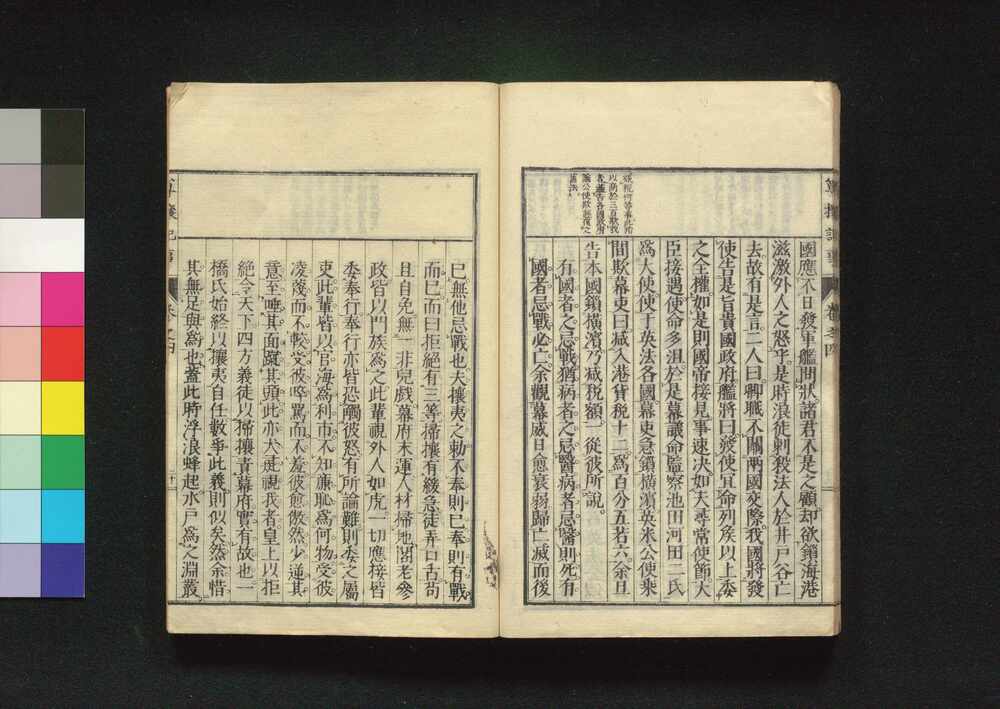 國應不日發軍艦問狀諸君不是之顧却欲鎖海港
滋激外人之怒乎是時浪徒刺殺法人於井戸谷亡
去故有是言二人曰卿職不關兩國交際我國將發
使告是旨貴國政府艦將曰發使宜命列矦以上委
之全權如是則國帝接見事速决如夫尋常使節大
臣接遇使命多沮於是幕議命監察池田河田二氏
爲大使使于英法各國幕吏急鎖横濱英米公使乘
間欺幕吏曰减入港貨税十二爲百分五若六余且
告本國鎖横濱乃减税額一從彼所說
有國者之忌戰猶病者之忌醫病者忌醫則死有
國者忌戰必亡余觀幕威日愈衰弱歸亡滅而後
已無他忌戰也夫攘夷之勅不奉則已奉則有戰
而已而曰拒絕有三等掃攘有緩急徒弄口舌苟
且自免無一非兒戲幕府末運人材掃地閣老參
政皆以門族爲之此輩視外人如虎一切應接皆
委奉行奉行亦皆恐觸彼怒有所論難則委之屬
吏此輩皆以官海爲利市不知廉恥爲何物受彼
凌蔑而不較棠彼啐罵而不羞彼愈傲然少逋其
意至唾其面蹴其頭此亦犬豕視我者皇上以拒
絕令天下四方義徒以掃攘責幕府實有故也一
橋氏始終以攘夷自任數爭此義則似矣然余惜
其無足與爲也蓋此時浮浪蜂起水戸爲之淵叢
尊攘記事
卷之四